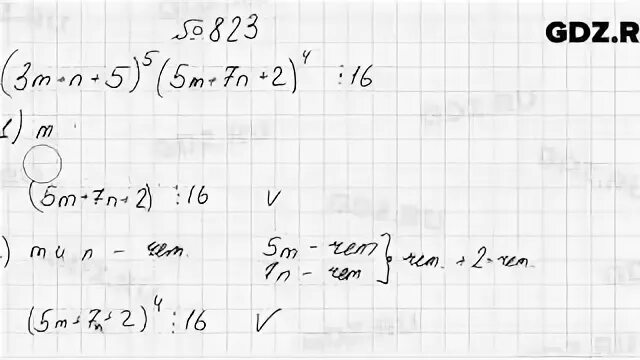 № 823
GDZ.R
(3m+n+5)⁵(5m+7n+2)⁴ ⋮16
1) m
(5m+7n+2) ⋮16 V
) m и n - чет. 5m - чет
7n - чет ] чет. + 2 = чет.
(5m+7n+2)⁴ ⋮16 V